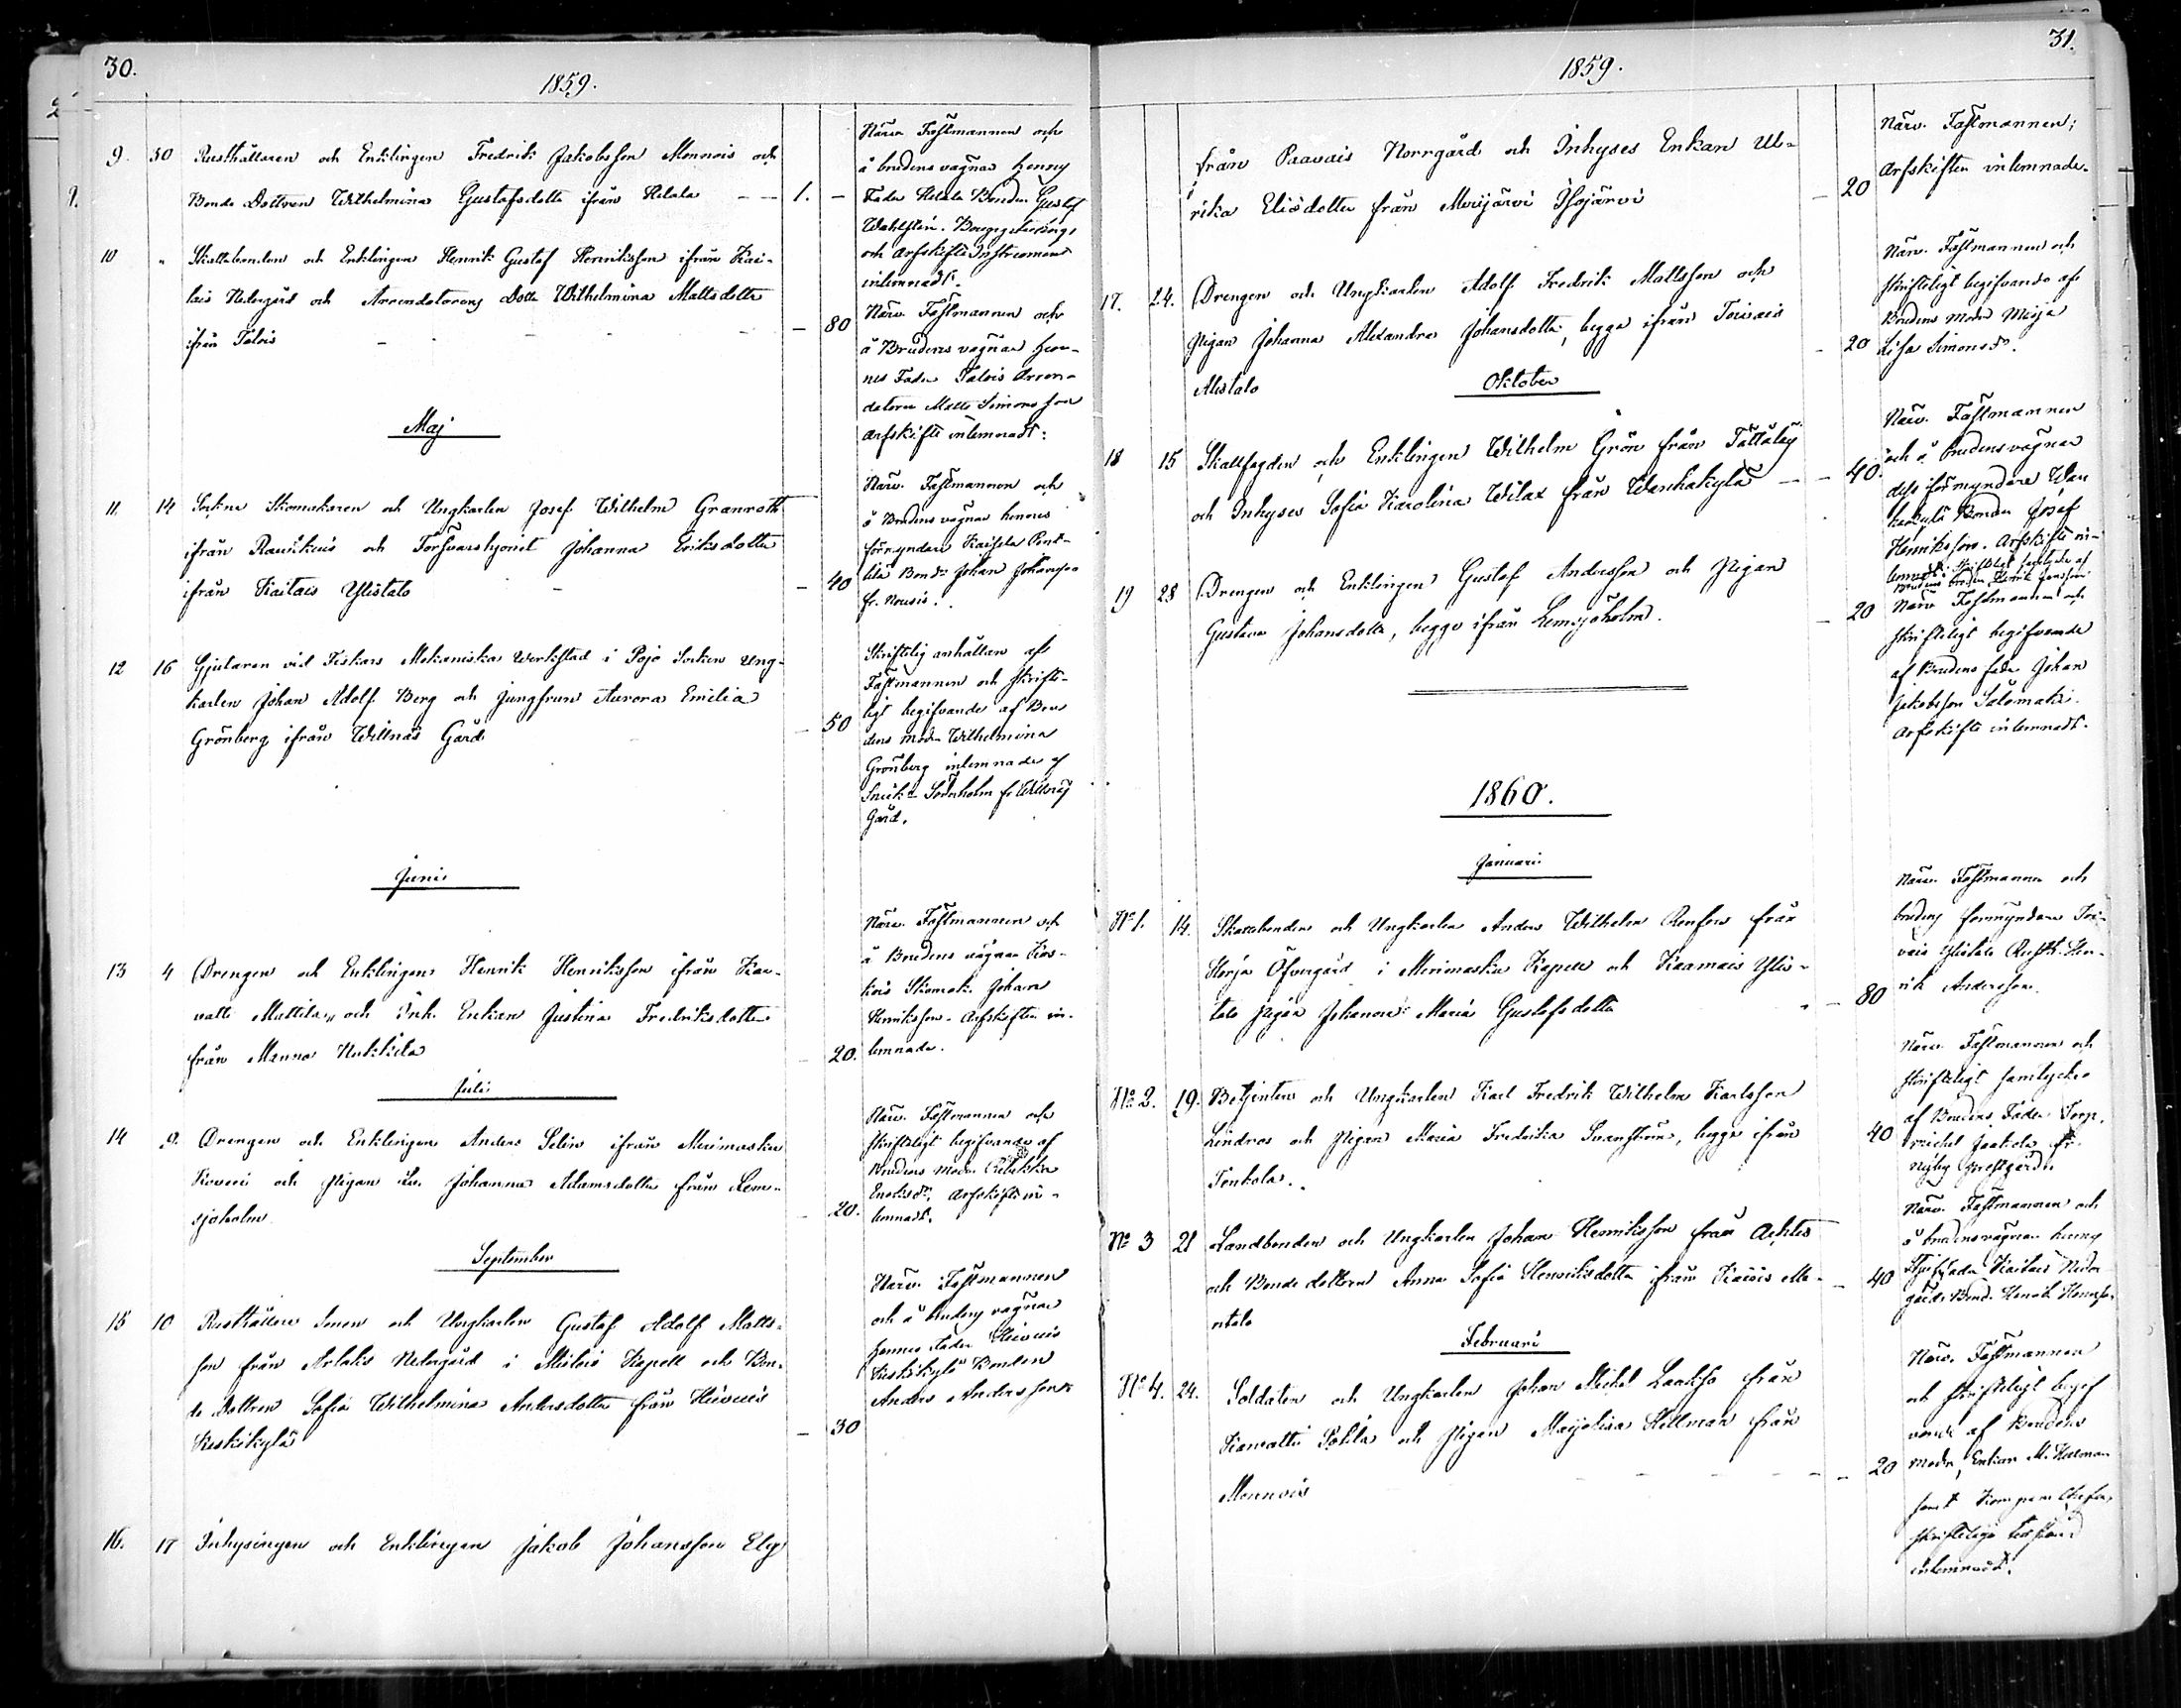 30.
1859.
9. 30 Rusthållaren och Enklingen Fredrik Jakobsson Monnois och
Bonde Dottren Wilhelmina Gustafsdotter ifrån Hetala 1. –
Närv. Fästmannen och
å brudens vägnar hennes
Fader Hetala Bonden Gustaf
och Arfskifte Instrument
inlemnadt.
10 " Skattebonden och Enklingen Henrik Gustaf Henriksson ifrån Kai-
lais Nedergård och Arrendatorens Dotter Wilhelmina Mattsdotter
ifrån Talois – 80
Närv. Fästmannen och
å Brudens vägnar hen-
nes Fader Talois Arren-
datorn Matts Simonsson
Arfskifte inlemnadt:
Maj
11. 14 Sockne Skomakaren och Ungkarlen Josef Wilhelm Granroth
ifrån Rauikais och Försvarshjonet Johanna Eriksdotter
ifrån Kaitais Ylistalo – 40
Närv. Fästmannen och
å Brudens vägnar hennes
förmyndare Kaisela Pent-
tilä Bond: Johan Johansson
fr. Nousis.
12 16 Gjutaren vid Fiskars Mekaniska Werkstad i Pojo Socken Ung-
karlen Johan Adolf Berg och Jungfrun Aurora Emilia
Grönberg ifrån Willnäs Gård – 50
Skriftelig anhållan af
Fästmannen och skrift-
ligt begifvande af Bru
dens Moder Wilhelmina
Grönberg inlemnade af
Söderholm fr Willnäs
Gård.
Juni
13 4 Drengen och Enklingen Henrik Henriksson ifrån Kar-
vatti Mattila, och Inh. Enkan Justina Fredriksdotter
från Manno Nukkila – 20.
Närv. Fästmannen och
å Brudens vägnar
Skomak. Johan
Henriksson. Arfskiften in-
lemnade.
Juli
14 9. Drengen och Enklingen Anders Selin ifrån Merimasku
och Pigan Johanna Adamsdotter från Lem-
sjöholm – 20.
Närv. Fästmannen och
skriftligt begifvande af
Brudens moder Rebekka
Enoksdr. Arfskifte in-
lemnadt.
September
15 10 Rusthållare Sonen och Ungkarlen Gustaf Adolf Matts-
son från Artukis Nedergård i Mietois Kapell och Bon-
de Dottren Sofia Wilhelmina Andersdotter från Hiivais
Keskikylä – 30
Närv. Fästmannen
och å brudens vägnar
hennes Fader Hiivais
Keskikylä Bonden
Anders Andersson
16. 17 Inhysingen och Enklingen Jakob Johansson Elg
31.
1859.
från Paavais Norrgård och Inhyses Enkan Ul-
rika Elisdotter från Merijärvi Isojärvi – 20
Närv. Fästmannen;
Arfskiften inlemnade.
17. 24. Drengen och Ungkarlen Adolf Fredrik Mattsson och
Pigan Johanna Alexandra Johansdotter, begge ifrån Toivais
Alistalo – 20
Närv. Fästmannen och
skriftligt begifvande af
Brudens moder Maja
Lisa Simonsdr.
Oktober
18 15 Skattfogden och Enklingen Wilhelm Grön från
och Inhyses Sofia Karolina Wilax från Wanhakylä – 40.
Närv. Fästmannen
och å brudens vägnar
dess förmyndare Wan
hakylä Bonden Josef
Henriksson. Arfskifte in-
19 28 Drengen och Enklingen Gustaf Andersson och Pigan
Gustava Johansdotter, begge ifrån Lemsjöholm. – 20
Närv Fästmannen och
skriftligt begifvande
af Brudens fader Johan
Jakobsson Salomäki.
Arfskifte inlemnadt.
1860.
Januari
No 1. 14. Skattebonden och Ungkarlen Anders Wilhelm Renfors från
Öfvergård i Merimasku Kapell och Kaamais Ylis-
talo pigan Johanna Maria Gustafsdotter – 80
Närv. Fästmannen och
brudens förmyndare Toi-
vais Ylistalo Rusth. Hen-
rik Andersson.
No 2. 19. Betjenten och Ungkarlen Karl Fredrik Wilhelm Karlsson
Lindros och Pigan Maria Fredrika Svanström, begge ifrån
Tenkola. 40
Närv. Fästmannen och
skriftligt samtycke
af Brudens Fader Torp.
fr.
Nyby Prestgård
No 3 21 Landbonden och Ungkarlen Johan Henriksson från Ahtis
och Bonde dottren Anna Sofia Henriksdotter ifrån Kaivis Me-
ntalo – 40
Närv. Fästmannen och
å brudens vägnar hennes
Styffader Kaitais Neder
gårds Bond. Henrik Henriksson
Februari
No 4. 24. Soldaten och Ungkarlen Johan Mickel Laakso från
Karvatti Pohila och Pigan Majalisa Hellman från
Monnois – 20
Närv. Fästmannen
och skriftligt begif
vande af Brudens
Moder, Enkan M. Hellman
samt Kompani Chefens
skriftliga tillstånd
inlemnadt.